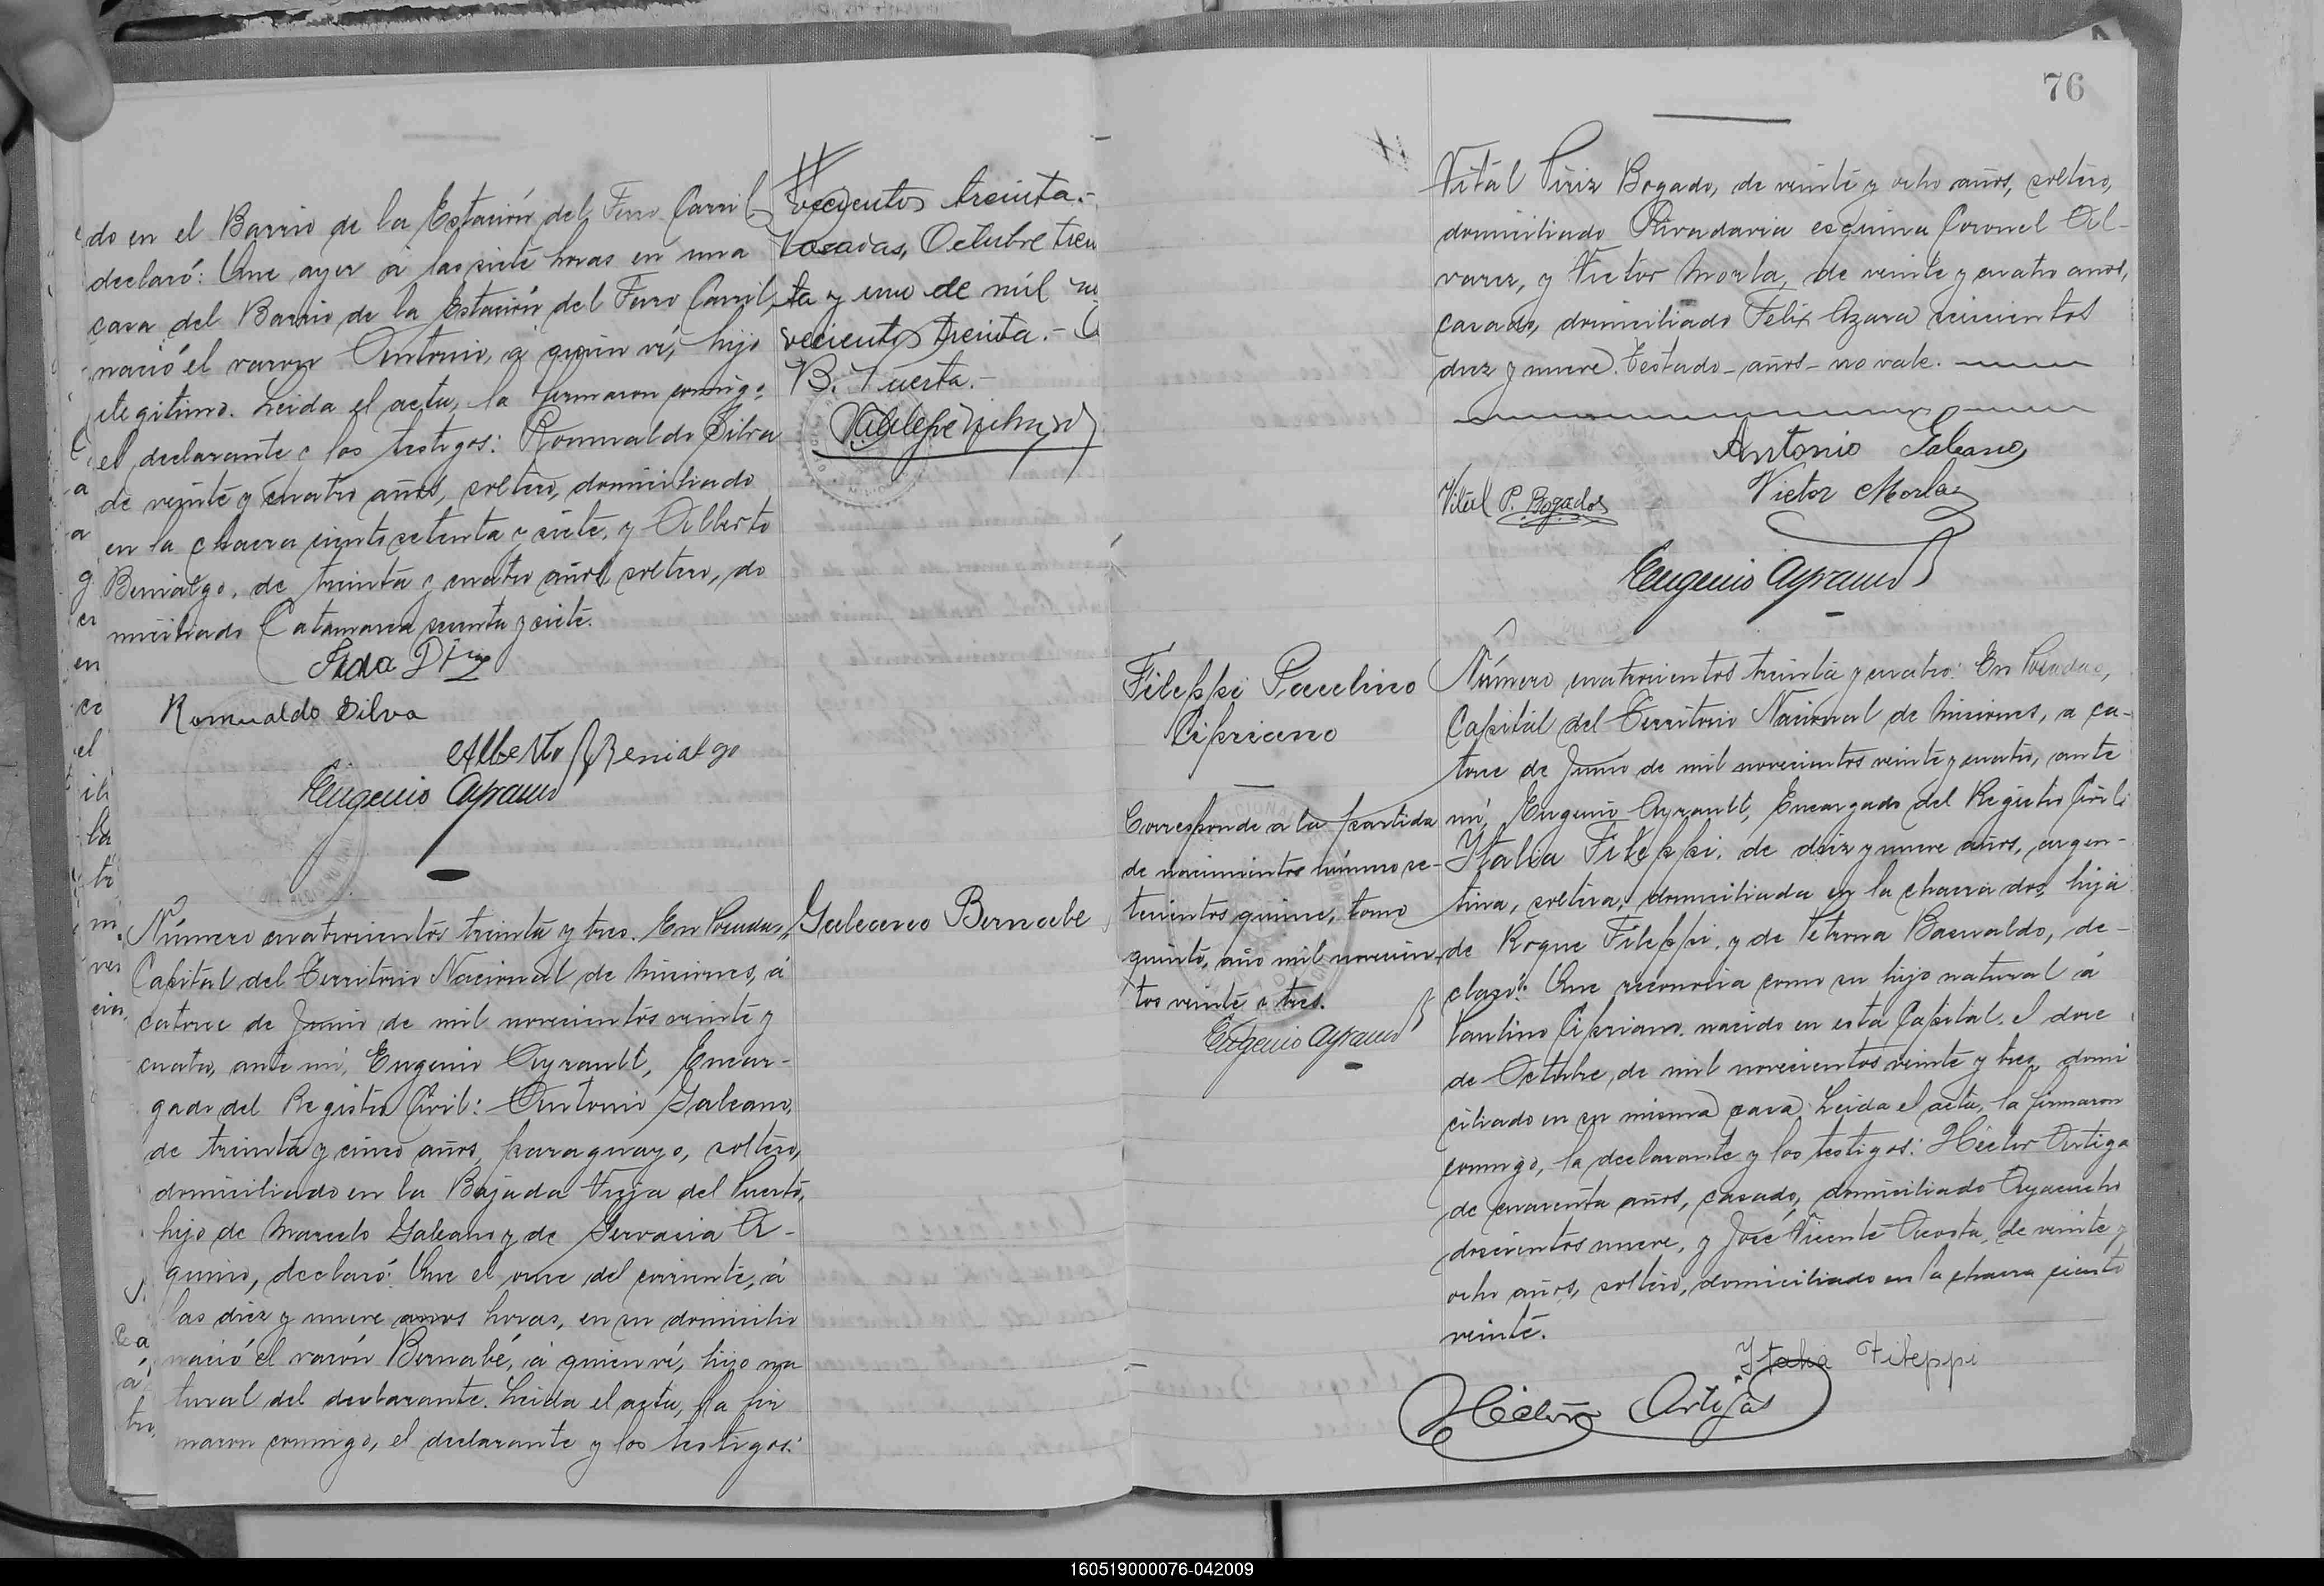 do en el Barrio de la Estación del Ferro Carril,
declaró: Que ayer á las siete horas en una
casa del Barrio de la Estación del Ferro Carril,
nació el varon Antonio, a quien ví, hijo
ilegitimo. Leida el acta, la firmaron conmigo
el declarante y los testigos: Romualdo Silva
de veinte y cuatro años, soltero, domiciliado
en la chacra ciento setenta y siete, y Alberto
Benialgo, de treinta y cuatro años, soltero, do
miciliado Catamarca sesenta y siete.
Romualdo Silva
Alberto Benialgo
Eugenio Ayrault
vecientos treinta.-
Posadas, Octubre trein
ta y uno de mil no
vecientos treinta.-
B. Puerta.-
Número cuatrocientos treinta y tres. En Posadas,
Capital del Territorio Nacional de Misiones, á
catorce de Junio de mil novecientos veinte y
cuatro, ante mí, Eugenio Ayrault, Encar-
gado del Registro Civil: Antonio Galeano,
de treinta y cinco años, paraguayo, soltero,
domiciliado en la Bajada Vieja del Puerto,
hijo de Marcelo Galeano y de Gervacia A-
quino, declaró: Que el once del corriente, á
las diez y nueve años horas, en su domicilio
nació el varón Bernabé, á quien ví, hijo na
tural del declarante. Leida el acta, la fir
maron conmigo, el declarante y los testigos:
Galeano Bernabe
76
Vital Piriz Bogado, de veinte y ocho años, soltero,
domiciliado Rivadavia esquina Coronel Al-
varez, y Victor Morla, de veinte y cuatro años,
casado, domiciliado Felix Azara seiscientos
diez y nueve. Testado - años - no vale.
Antonio Galeano
Vital P. Bogados
Victor Morla
Eugenio Ayrault
Fileppi Paulino
Cipriano
Corresponde a la partida
de nacimientos número se-
tecientos quince, tomo
quinto, año mil novecien-
tos veinte y tres.
Eugenio Ayrault
Número cuatrocientos treinta y cuatro. En Posadas,
Capital del Territorio Nacional de Misiones, a ca-
torce de Junio de mil novecientos veinte y cuatro, ante
mí, Eugenio Ayrault, Encargado del Registro Civil:
Italia Fileppi, de diez y nueve años, argen-
tina, soltera, domiciliada en la chacra dos, hija
de Roque Fileppi, y de Petrona Basualdo, de-
claró: Que reconocia como su hijo natural á
Paulino Cipriano, nacido en esta Capital, el doce
de Octubre, de mil novecientos veinte y tres, domi
ciliado en su misma casa. Leida el acta, la firmaron
conmigo, la declarante y los testigos: Héctor Artiga
de cuarenta años, casado, domiciliado Ayacucho
doscientos nueve, y José Vicente Acosta, de veinte y
ocho años, soltero, domiciliado en la chacra ciento
veinte.
Italia Fileppi
Héctor Artigas
160519000076-042009